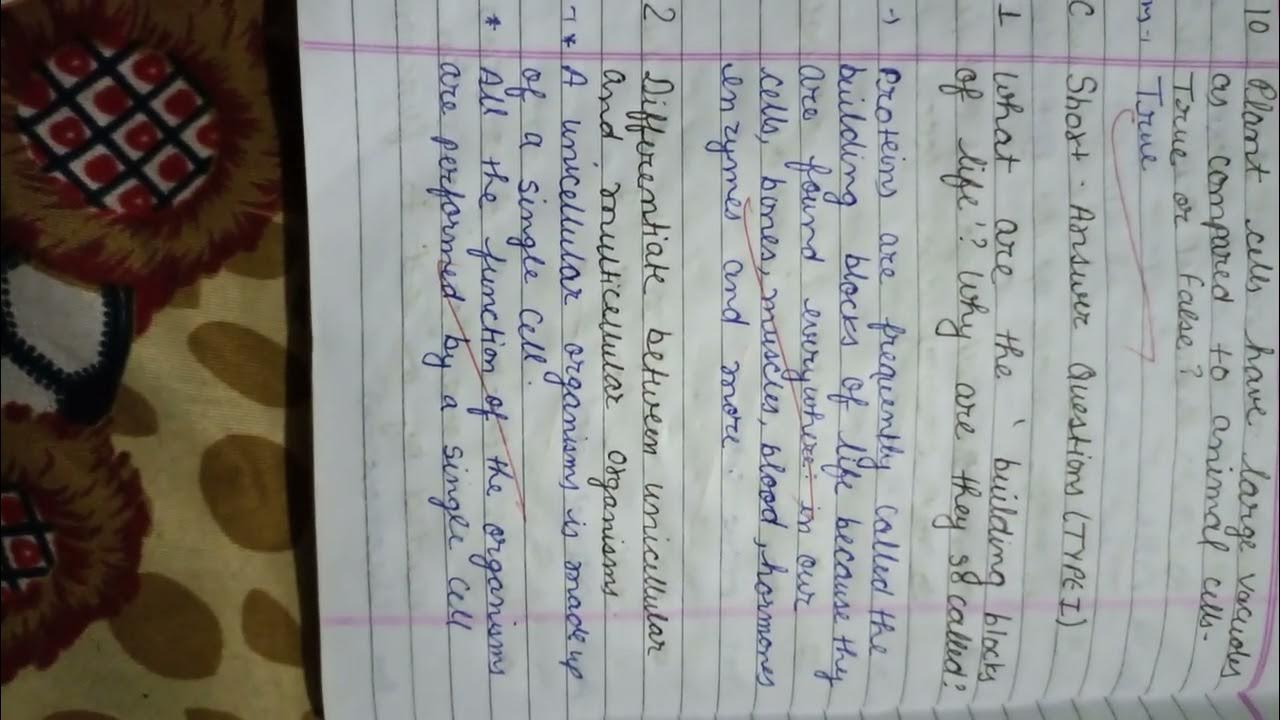 10 Plant cells have large vacuoles
as compared to animal cells.
True or False?
True
C Short - Answer Questions (TYPE I)
1 What are the 'building blocks
of life'? Why are they so called?
→ Proteins are frequently called the
building blocks of life because thy
are found everywhere in our
cells, bones, muscles, blood, hormones
enzymes and more.
2 Differentiate between unicellular
and multicellular organisms.
→ * A unicellular organisms is made up
of a single cell.
* All the function of the organisms
are performed by a single cell